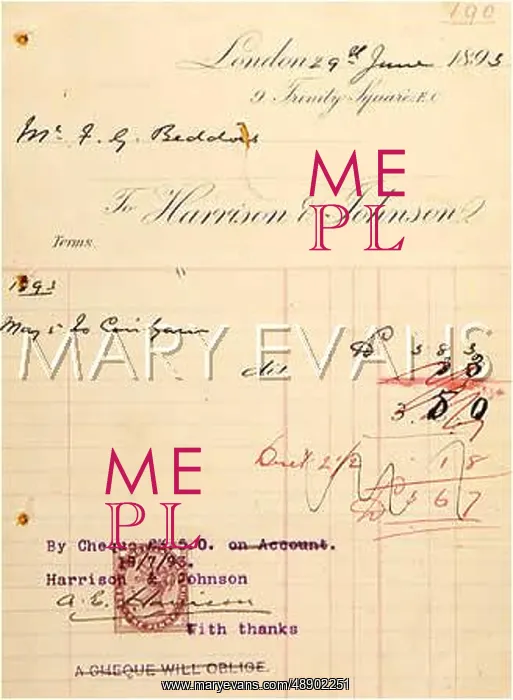 190
London 29th June 1893
9 Trinity Square E.C
Mr. F. G. Beddows
ME
PL
To Harrison & Johnson
Terms
1893
May 5 To
MARY EVANS
3 8 3
3 5 0
2 1/2 . 1 8
3 6 7
ME
PL
By Cheque £3.5.0. on Account.
18/7/93.
Harrison & Johnson
With thanks
A CHEQUE WILL OBLIGE.
www.maryevans.com/48902251